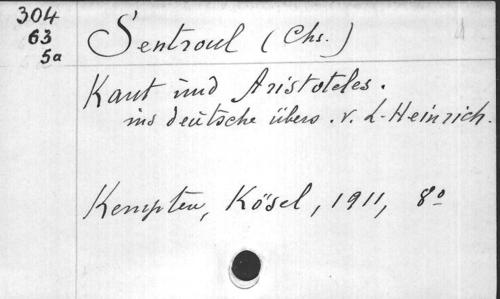 304
63
5a
Sentroul (Chs.)
Kant und Aristoteles.
ins deutsche übers. v. L. Heinrich.
Kempten, Kösel, 1911, 8º